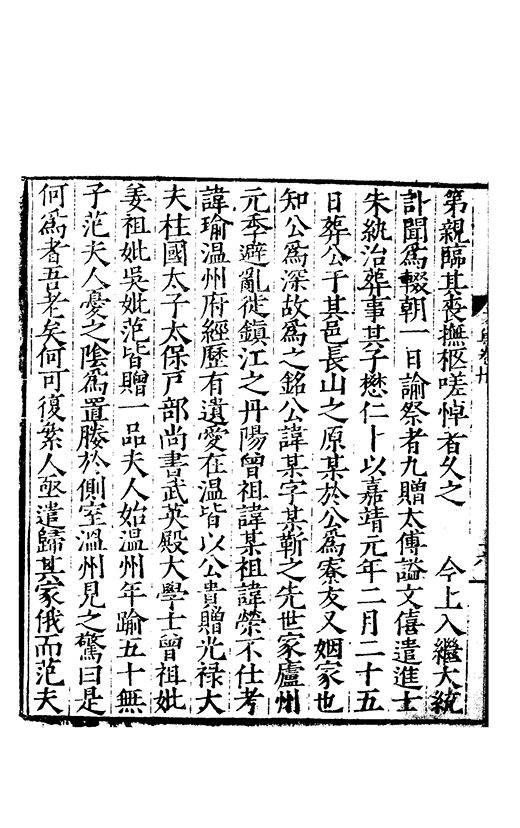 第親臨其喪撫柩嗟悼者久之　今上入繼大統
訃聞爲輟朝一日諭祭者九贈太傅謚文僖遣進士
朱紈治葬事其子懋仁卜以嘉靖元年二月二十五
日葬公于其邑長山之原某於公爲寮友又姻家也
知公爲深故爲之銘公諱某字某靳之先世家廬州
元季避亂徙鎮江之丹陽曾祖諱某祖諱榮不仕考
諱瑜溫州府經歷有遺愛在溫皆以公貴贈光祿大
夫柱國太子太保戶部尚書武英殿大學士曾祖妣
姜祖妣吳妣范皆贈一品夫人始溫州年踰五十無
子范夫人憂之陰爲置媵於側室溫州見之驚曰是
何爲者吾老矣何可復累人亟遣歸其家俄而范夫